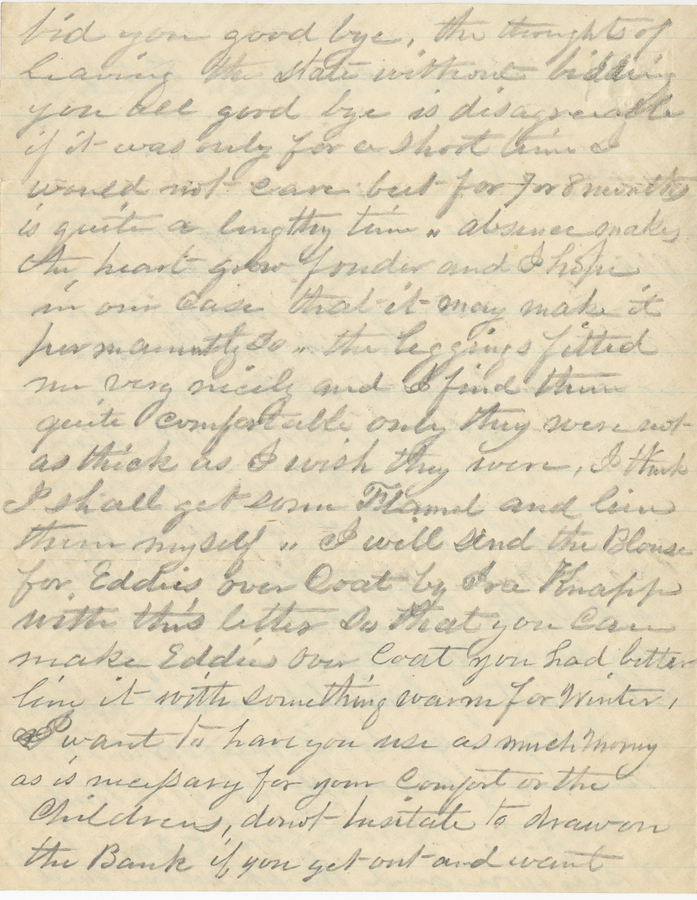 bid you good bye, the thoughts of
leaving the State without bidding
you all good bye is disagreeable
if it was only for a short time I
would not care but for 7 or 8 months
is quite a lengthy time " absence makes
the heart grow fonder and I hope
in our Case that it may make it
permanently So " the leggings fitted
me very nicely and I find them
quite comfortable only they were not
as thick as I wish they were, I think
I shall get some Flannel and line
them myself " I will send the Blouse
for Eddies over Coat by Ira Knapp
with this letter So that you Can
make Eddies over Coat you had better
line it with something warm for Winter,
I want to have you use as much Money
as is necessary for your Comfort or the
Childrens, do not hesitate to draw on
the Bank if you get out and want